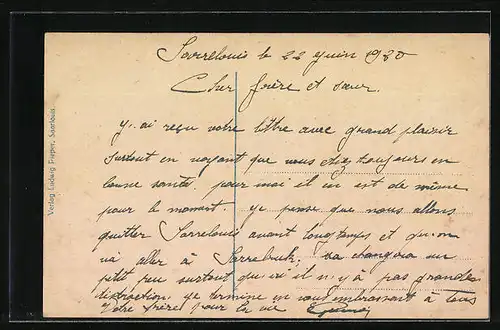 Sarrelouis le 22 juin 1920
Cher frère et sœur.
j'ai reçu votre lettre avec grand plaisir
surtout en voyant que vous étiez toujours en
bonne santé, pour moi il en est de même
pour le moment je pense que nous allons
quitter Sarrelouis avant longtemps et qu'on
va aller à Sarrebruk, sa changera un
petit peu surtout que ici il n'y à pas grandes
distraction. je termine en vous embrassant à tous
Votre frère pour la vie
Verlag Ludwig Pieper, Saarlouis